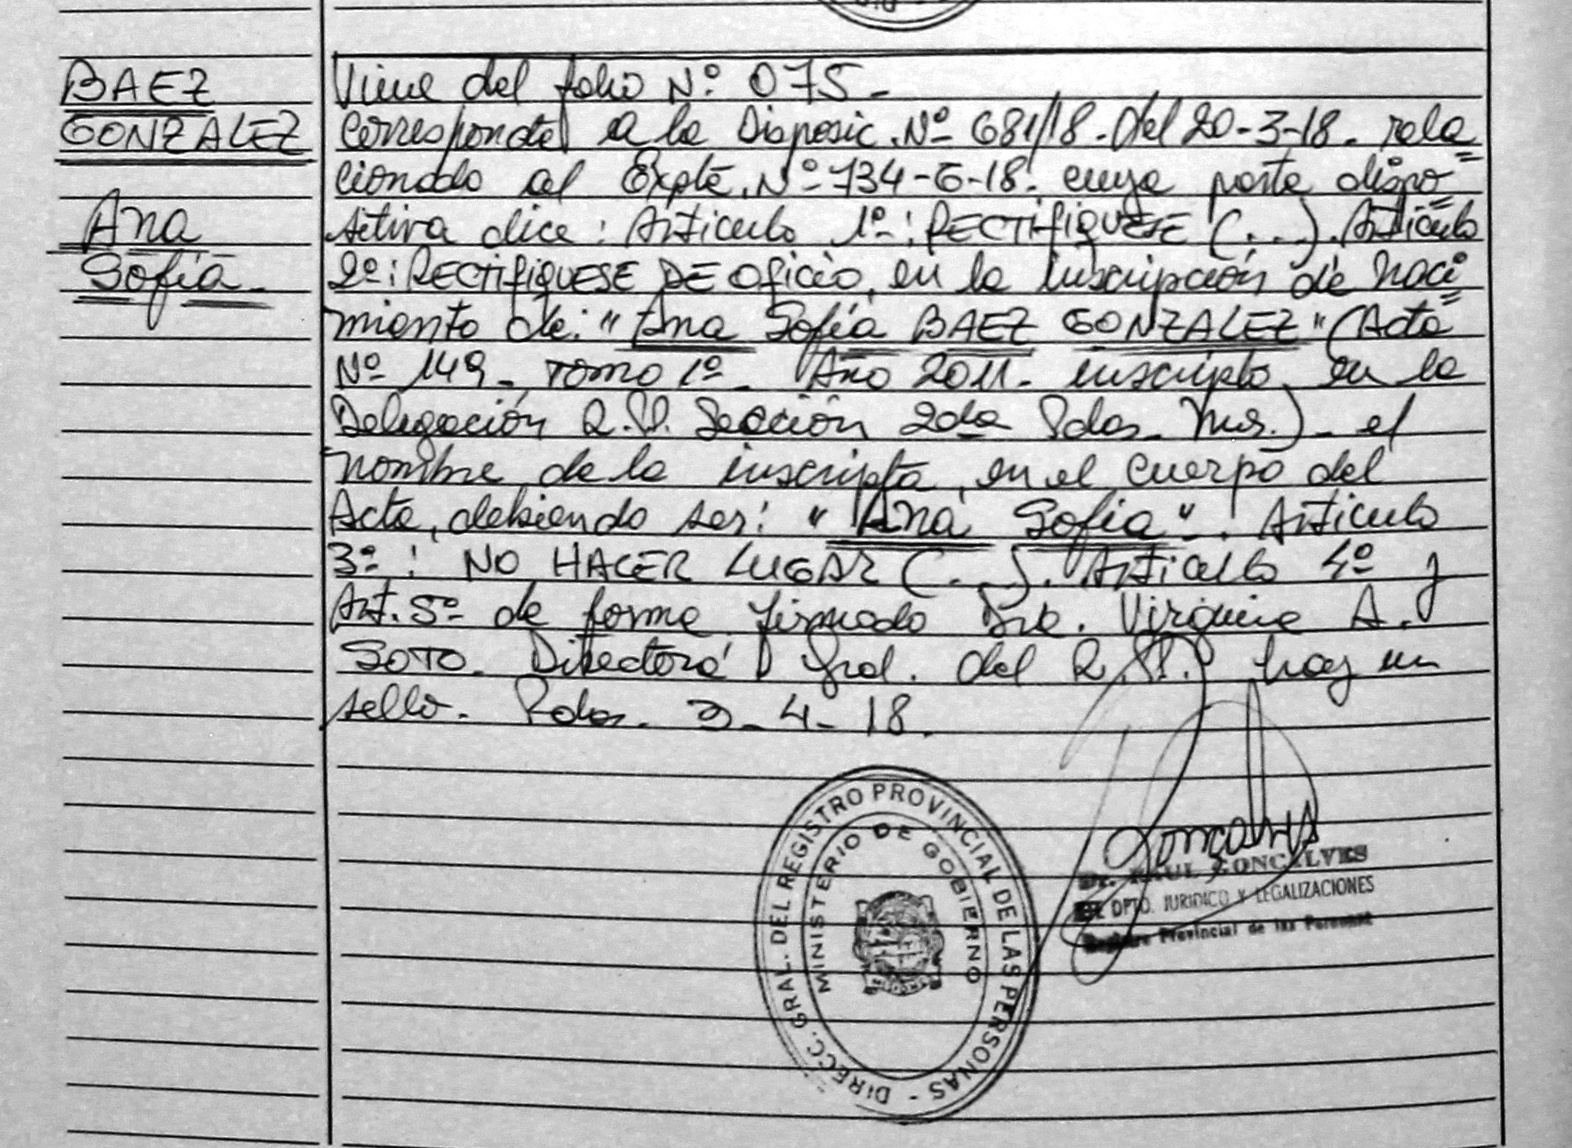 BAEZ
GONZALEZ
Ana
Sofía-
Viene del folio Nº 075-
Correspondte a la Disposic. Nº 681/18. del 20-3-18. rela=
cionado al Expte. Nº 734-G-18. cuya parte dispo=
sitiva dice: Artículo 1º: RECTIFIQUESE (...). Artículo
2º: RECTIFIQUESE DE Oficio, en la inscripción de naci=
miento de: "Ana Sofía BAEZ GONZALEZ" (Acta
Nº 149- Tomo 1º- Año 2011- inscripta en la
Delegación R.P. Sección 2da Pdas- Mns.)- el
nombre de la inscripta, en el cuerpo del
Acta, debiendo ser: "Ana Sofía". Artículo
3º: NO HACER LUGAR (...). Artículo 4º y
Art. 5º de forma firmado Dra. Virginia A.
SOTO- Directora Gral. del R.P. hay un
sello- Pdas- 3-4-18.
DIRECC. GRAL. DEL REGISTRO PROVINCIAL DE LAS PERSONAS -
MINISTERIO DE GOBIERNO
MISIONES
Dr. RAUL GONCALVES
DPTO. JURIDICO Y LEGALIZACIONES
Registro Provincial de las Personas